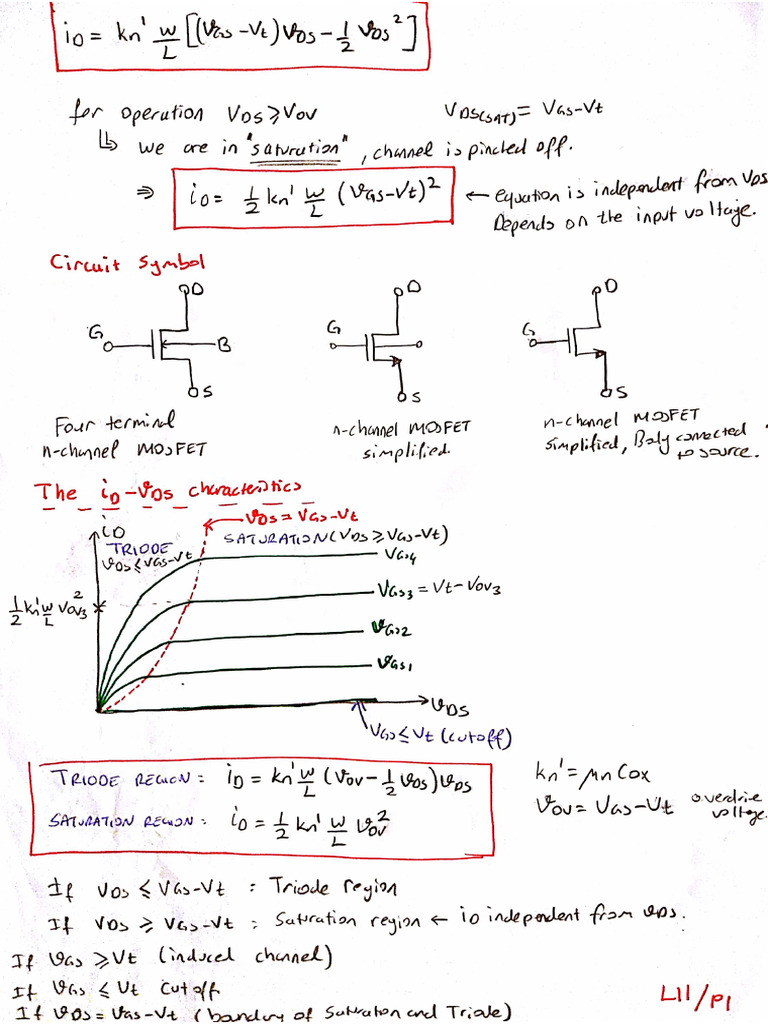 iD = kn' W/L [(vGS - Vt) vDS - 1/2 vDS²]
for operation VDS ≥ VOV    VDS(SAT) = VGS - Vt
↳ we are in "saturation", channel is pinched off.
⇒ iD = 1/2 kn' W/L (vGS - Vt)² ← equation is independent from VDS
Depends on the input voltage.
Circuit Symbol
D D D
G G G
B
S S S
Four terminal
n-channel MOSFET
n-channel MOSFET
simplified.
n-channel MOSFET
simplified, Body connected
to source.
The iD - vDS characteristics
iD
vDS = VGS - Vt
TRIODE
vDS ≤ VGS - Vt
SATURATION (VDS ≥ VGS - Vt)
VGS4
1/2 kn' W/L VOV3²
VGS3 = Vt - VOV3
VGS2
VGS1
vDS
VGS ≤ Vt (cutoff)
TRIODE REGION: iD = kn' W/L (VOV - 1/2 vDS) vDS
SATURATION REGION: iD = 1/2 kn' W/L VOV²
kn' = μn Cox
VOV = VGS - Vt overdrive
voltage.
If VDS ≤ VGS - Vt : Triode region
If VDS ≥ VGS - Vt : Saturation region ← iD independent from vDS.
If VGS ≥ Vt (induced channel)
If VGS ≤ Vt cutoff
If VDS = VGS - Vt (boundary of Saturation and Triode)
L11/P1